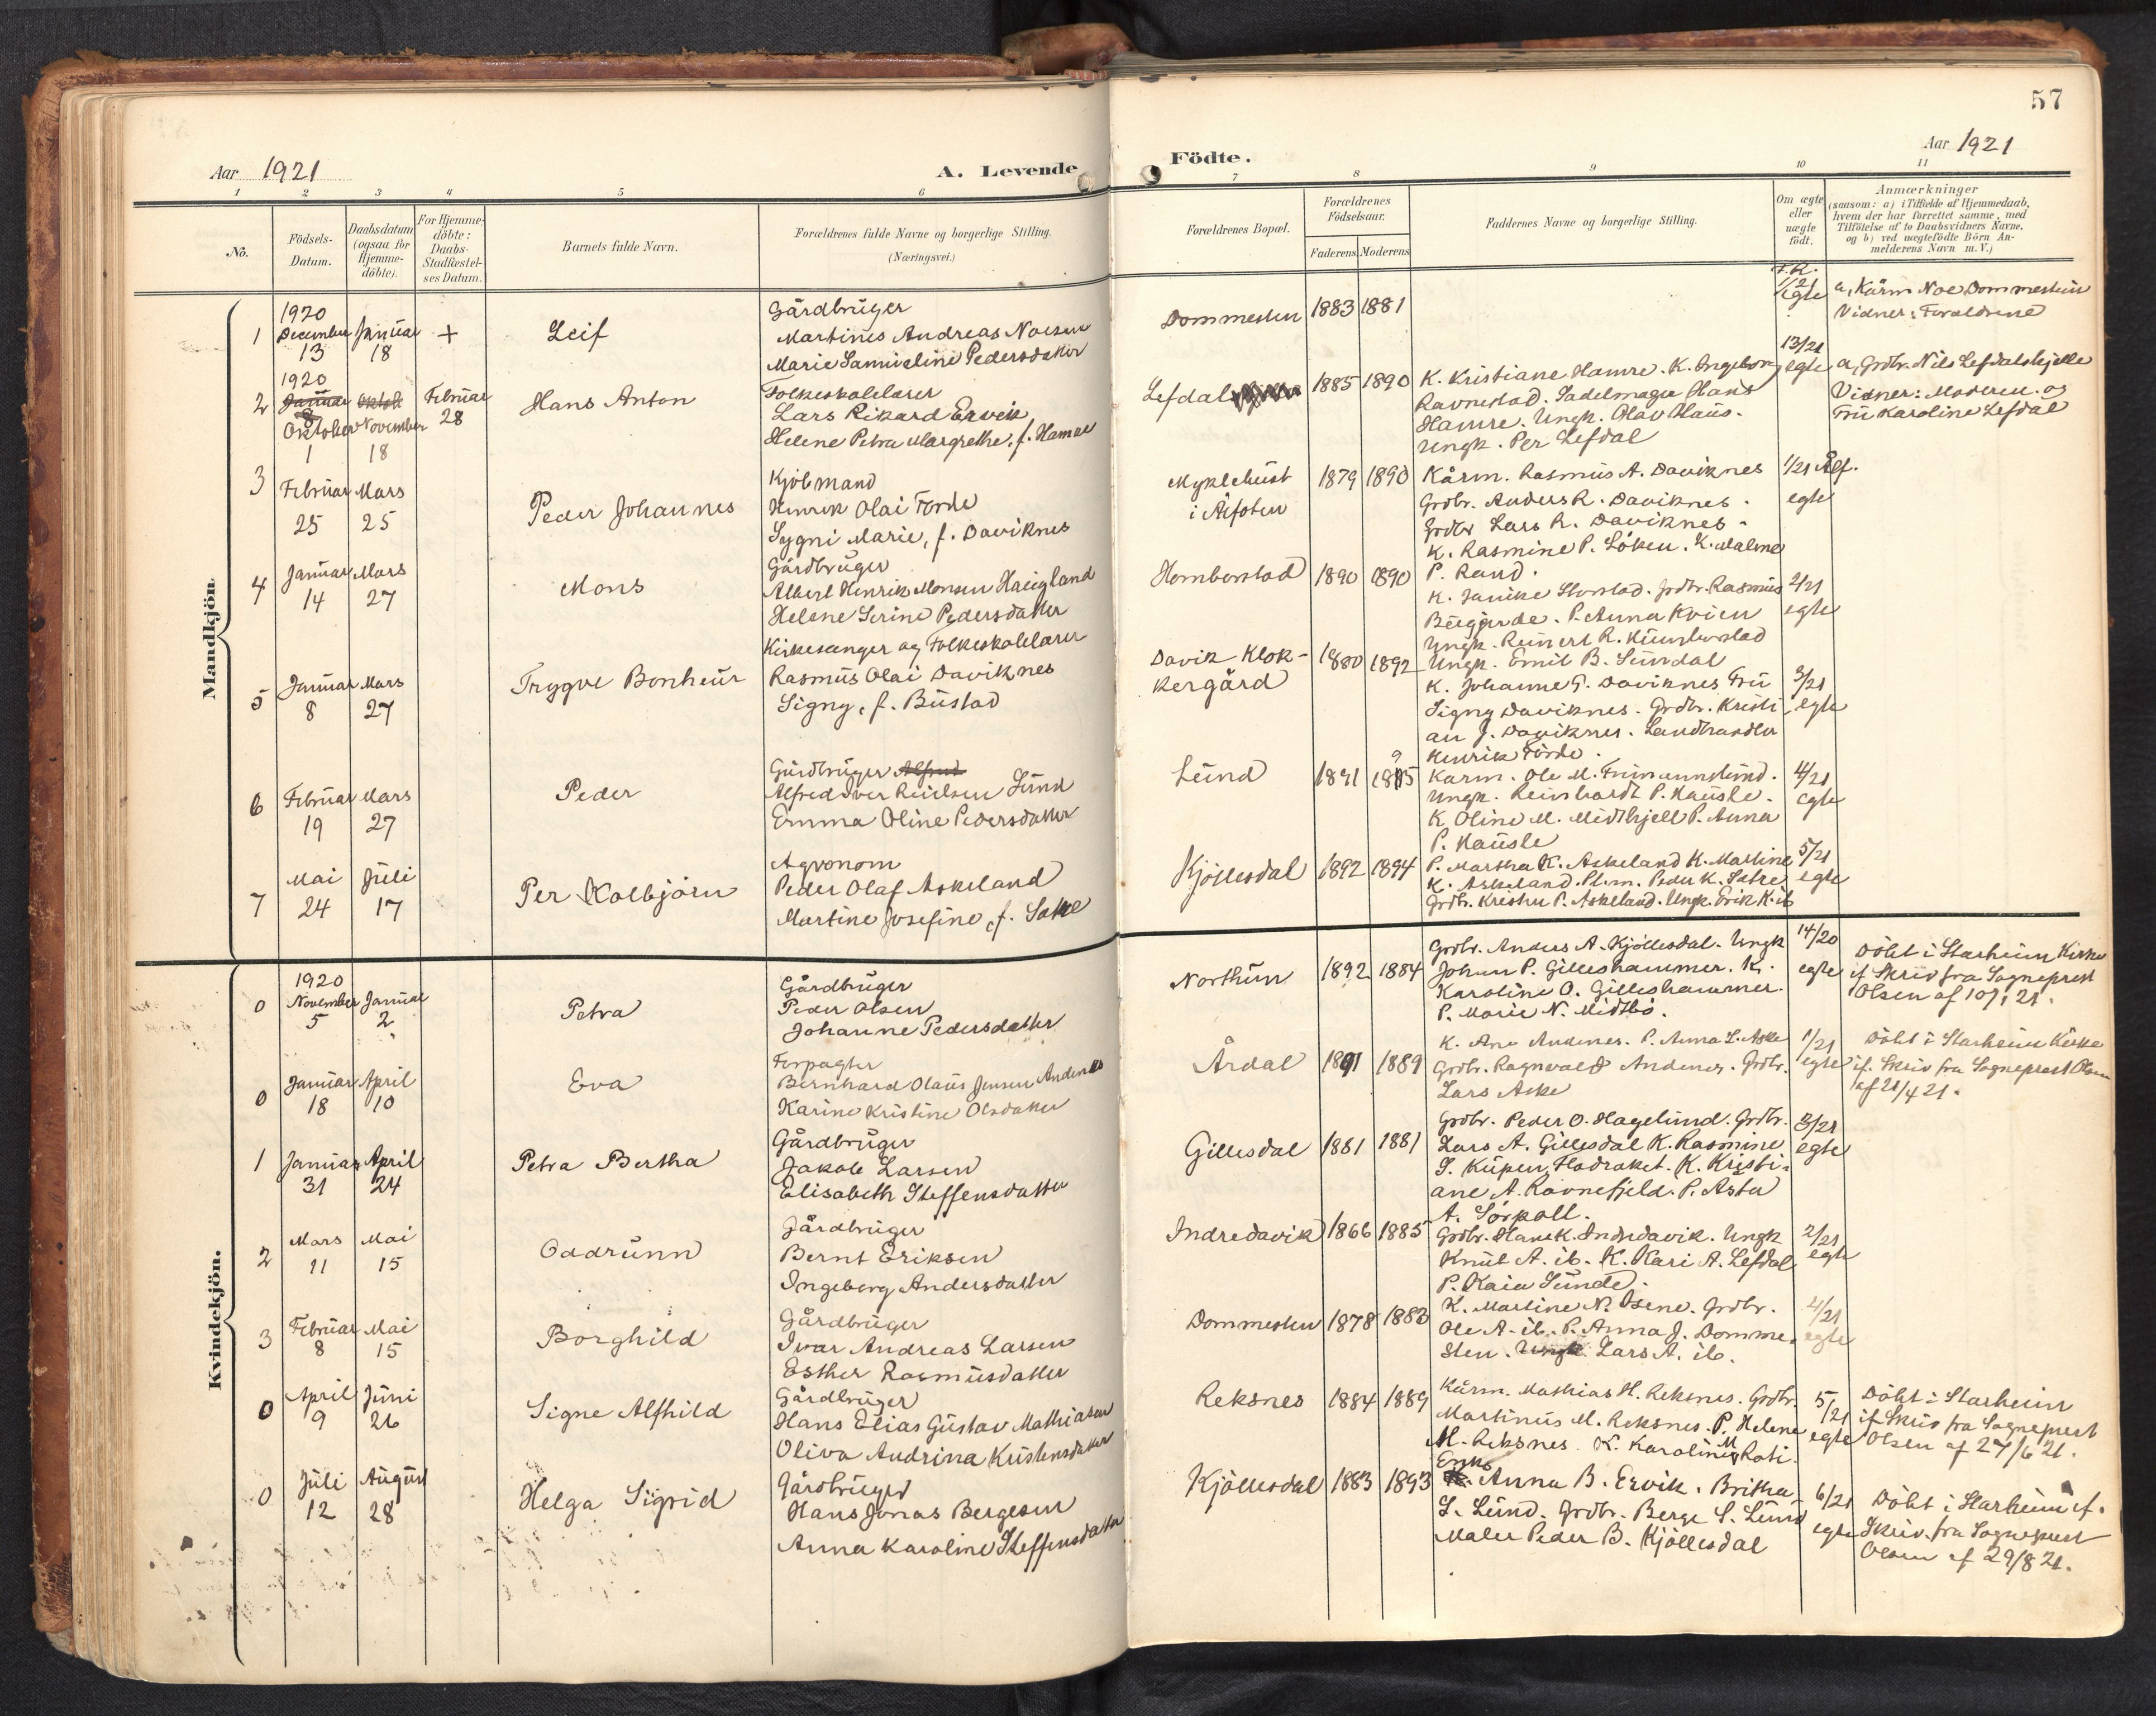 57
Aar 1921
A. Levende
Födte.
Aar 1921
1 2 3 4 5 6 7 8 9 10 11
No.
Födsels-
Datum.
Daabsdatum
(ogsaa for
Hjemme-
döbte).
For Hjemme-
döbte:
Daabs-
Stadfæstel-
ses Datum.
Barnets fulde Navn.
Forældrenes fulde Navne og borgerlige Stilling.
(Næringsvei.)
Forældrenes Bopæl.
Forældrenes
Födselsaar.
Faderens Moderens
Faddernes Navne og borgerlige Stilling.
Om ægte
eller
uægte
födt.
Anmærkninger
(saasom: a) i Tilfælde af Hjemmedaab,
hvem der har forrettet samme, med
Tilföielse af to Daabsvidners Navne.
og b) ved uægtefödte Börn An-
melderens Navn m. V.)
Mandkjön.
1
1920
December 13
Januar 18
+
Leif
Gårdbruger
Martinus Andreas Noesen
Marie Samueline Pedersdatter
Dommesten
1883 1881
1/21
egte
a, Kårm. Noe Dommesten
Vidner: Foræeldrene
2
1920
Oktober 1
November 18
Februar 28
Hans Anton
Folkeskolelærer
Lars Rikard Ervik
Helene Petra Margrethe, f. Hamre
Lefdal
1885 1890
K. Kristiane Hamre. K. Ingeborg
Ravnestad. Sadelmager Hans
Hamre. Ungk. Olav Haus.
Ungk. Per Lefdal
13/21
egte
a, Grdbr. Nils Lefdalskjelle
Vidner: Moderen og
Fru Karoline Lefdal
3
Februar 25
Mars 25
Peder Johannes
Kjöbmand
Henrik Olai Förde
Sygni Marie, f. Daviknes
Myklebust
i Ålfoten
1879 1890
Kårm. Rasmus A. Daviknes
Grdbr. Anders R. Daviknes.
Grdbr Lars R. Daviknes.
K. Rasmine P. Löken. K. Malene
P. Rand.
1/21 Ålf.
egte
4
Januar 14
Mars 27
Mons
Gårdbruger
Albert Henrik Monsen Haugland
Helene Serine Pedersdatter
Homborstad
1890 1890
K. Janike Storstad. Grdbr. Rasmus
P. Anna Kvien
Ungk. Reinert R. Humborstad
2/21
egte
5
Januar 8
Mars 27
Trygve Bonheur
Kirkesanger og Folkeskolelærer
Rasmus Olai Daviknes
Signy, f. Bustad
Davik Klok-
kergård
1880 1892
Ungk. Emil B. Sundal
K. Johanne G. Daviknes Fru
Signy Daviknes. Grdbr. Kristi
an J. Daviknes. Landhandler
Henrik Förde.
3/21
egte
6
Februar 19
Mars 27
Peder
Gårdbruger Alfred
Alfred Iver Reielsen Lund
Emma Oline Pedersdatter
Lund
1891 1895
Karm. Ole M. Frimannslund.
Ungk. Reinhardt P. Hausle.
K Oline M. Midthjell P. Anna
P. Hausle
4/21
egte
7
Mai 24
Juli 17
Per Kolbjörn
Agronom
Peder Olaf Askeland
Martine Josefine, f. Sætre
Kjöllesdal
1892 1894
P. Martha K. Askeland K. Martine
K. Askeland. Pl.m. Peder K. Sætre
Grdbr. Krister P. Askeland. Ungk. Erik K. ib
5/21
egte
Kvindekjön.
0
1920
November 5
Januar 2
Petra
Gårdbruger
Peder Olsen
Johanne Pedersdatter
Northun
1892 1884
Grdbr. Anders A. Kjöllesdal. Ungk
Johan P. Gilleshammer. K.
Karoline O. Gilleshammer.
P. Marie N. Midtbö.
14/20
egte
Döbt i Starheim Kirke
if Skriv fra Sogneprest
Olsen af 10/1 21.
0
Januar 18
April 10
Eva
Forpagter
Bernhard Olaus Jensen Andenes
Karine Kristine Olsdatter
Årdal
1891 1889
K. Ane Andenes. P. Anna L. Aske
Grdbr. Ragnvald Andenes. Grdbr.
Lars Aske
1/21
egte
Döbt i Starheim Kirke
if. Skriv fra Sogneprest Olsen
af 21/4 21.
1
Januar 31
April 24
Petra Bertha
Gårdbruger
Jakob Larsen
Elisabeth Steffensdatter
Gillesdal
1881 1881
Grdbr. Peder O. Hagelund. Grdbr.
Lars A. Gillesdal K. Rasmine
S. Kupen, K. Kristi-
ane A. Ravnefjeld. P. Asta
A. Sörpoll.
3/21
egte
2
Mars 11
Mai 15
Oddrunn
Gårdbruger
Bernt Eriksen
Ingeborg Andersdatter
Indredavik
1866 1885
Grdbr. Hans K. Indredavik. Ungk
Knut A. ib. K. Kari A. Lefdal
P. Kaia Sunde.
2/21
egte
3
Februar 8
Mai 15
Borghild
Gårdbruger
Ivar Andreas Larsen
Esther Rasmusdatter
Dommesten
1878 1883
K. Martine N. Osene. Grdbr.
Ole A. ib. P. Anna J. Domme-
sten. Ungk. Lars A. ib.
4/21
egte
0
April 9
Juni 26
Signe Alfhild
Gårdbruger
Hans Elias Gustav Mathiasen
Oliva Andrina Kristensdatter
Reksnes
1884 1889
Kårm. Mathias H. Reksnes. Grdbr.
Martinus M. Reksnes. P. Helene
M. Reksnes. K. Karoline M Roti.
5/21
egte
Döbt i Starheim
if Skriv fra Sogneprest
Olsen af 27/6 21.
0
Juli 12
August 28
Helga Sigrid
Gårdbruger
Hans Jonas Bergesen
Anna Karoline Steffensdatter
Kjöllesdal
1883 1893
Enke
Anna B. Ervik. Britha
S. Lund. Grdbr. Berge S. Lund
Maler Peder B. Kjöllesdal
6/21
egte
Döbt i Starheim if.
Skriv. fra Sogneprest
Olsen af 29/8 21.